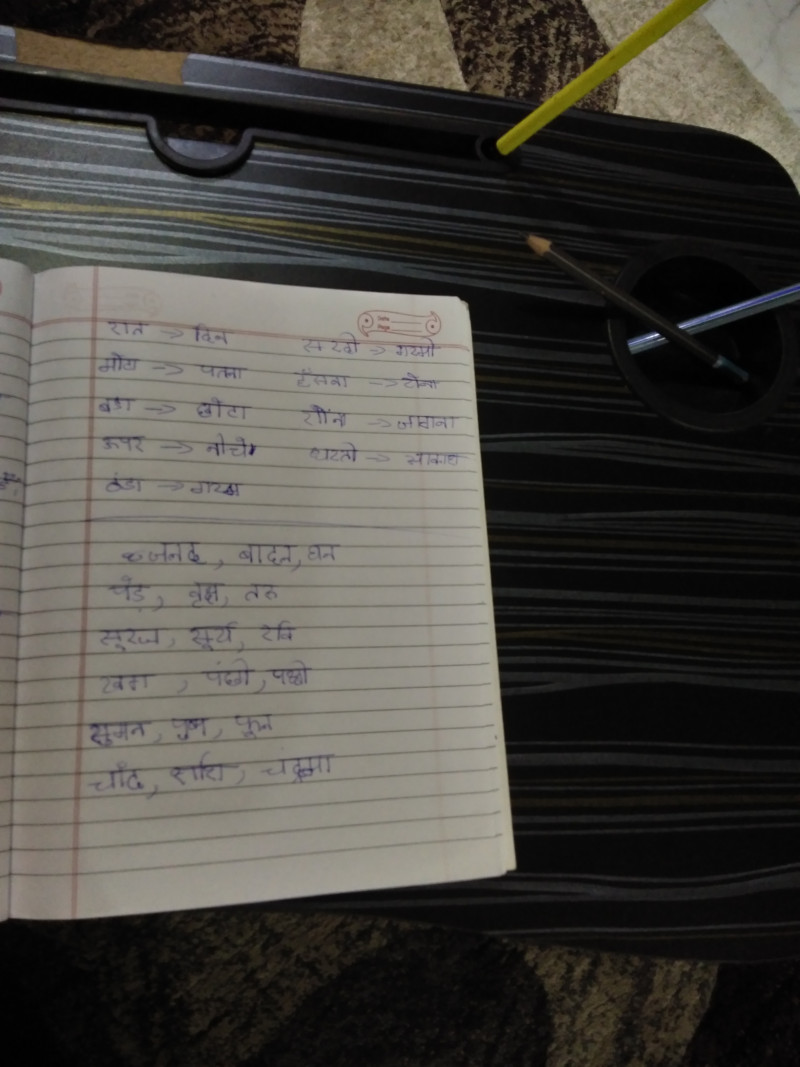 Date
Page
रात → दिन सरदी → गरमी
मोटा → पतला हँसना → रोना
बडा → छोटा सोना → जागना
ऊपर → नीचे धरती → आकाश
ठंडा → गरम
जलद, बादल, घन
पेड़, वृक्ष, तरु
सूरज, सूर्य, रवि
खग, पंछी, पक्षी
सुमन, पुष्प, फूल
चाँद, शशि, चंद्रमा